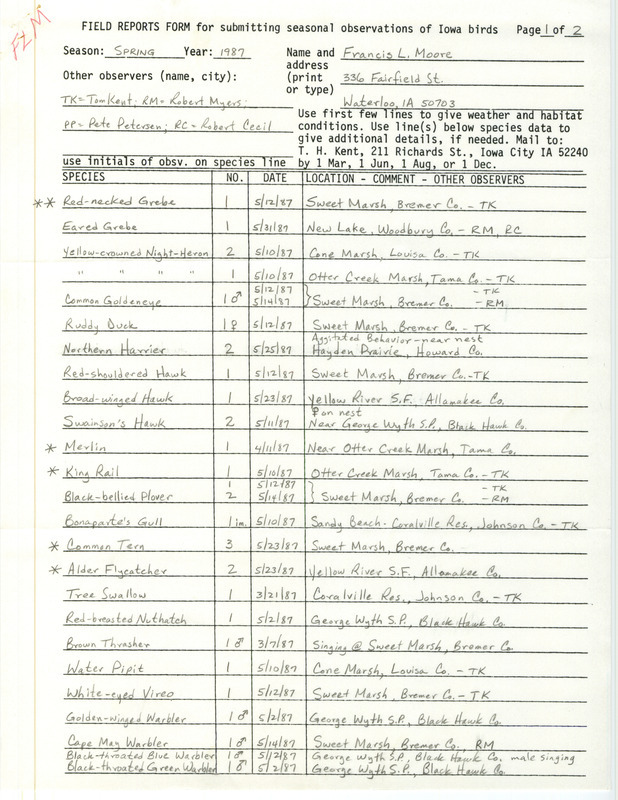 FLM
FIELD REPORTS FORM for submitting seasonal observations of Iowa birds Page 1 of 2
Season: SPRING Year: 1987 Name and Francis L. Moore
address
Other observers (name, city): (print 336 Fairfield St.
or type)
TK= Tom Kent; RM= Robert Myers; Waterloo, IA 50703
PP= Pete Petersen; RC= Robert Cecil
Use first few lines to give weather and habitat
conditions. Use line(s) below species data to
give additional details, if needed. Mail to:
T. H. Kent, 211 Richards St., Iowa City IA 52240
use initials of obsv. on species line by 1 Mar, 1 Jun, 1 Aug, or 1 Dec.
SPECIES NO. DATE LOCATION - COMMENT - OTHER OBSERVERS
** Red-necked Grebe 1 5/12/87 Sweet Marsh, Bremer Co. - TK
Eared Grebe 1 5/31/87 New Lake, Woodbury Co. - RM, RC
Yellow-crowned Night-Heron 2 5/10/87 Cone Marsh, Louisa Co. - TK
" " " " 1 5/10/87 Otter Creek Marsh, Tama Co. - TK
5/12/87 - TK
Common Goldeneye 1♂ 5/14/87 } Sweet Marsh, Bremer Co. - RM
Ruddy Duck 1♀ 5/12/87 Sweet Marsh, Bremer Co. - TK
Aggitated Behavior - near nest
Northern Harrier 2 5/25/87 Hayden Prairie, Howard Co.
Red-shouldered Hawk 1 5/12/87 Sweet Marsh, Bremer Co. - TK
Broad-winged Hawk 1 5/23/87 Yellow River S.F. Allamakee Co.
♀ on nest
Swainson's Hawk 2 5/11/87 Near George Wyth S.P., Black Hawk Co.
* Merlin 1 4/11/87 Near Otter Creek Marsh, Tama Co.
* King Rail 1 5/10/87 Otter Creek Marsh, Tama Co. - TK
1 5/12/87 - TK
Black-bellied Plover 2 5/14/87 } Sweet Marsh, Bremer Co. - RM
Bonaparte's Gull 1 im. 5/10/87 Sandy Beach - Coralville Res., Johnson Co. - TK
* Common Tern 3 5/23/87 Sweet Marsh, Bremer Co.
* Alder Flycatcher 2 5/23/87 Yellow River S.F., Allamakee Co.
Tree Swallow 1 3/21/87 Coralville Res., Johnson Co. - TK
Red-breasted Nuthatch 1 5/2/87 George Wyth S.P., Black Hawk Co.
Brown Thrasher 1♂ 3/7/87 Singing @ Sweet Marsh, Bremer Co.
Water Pipit 1 5/10/87 Cone Marsh, Louisa Co. - TK
White-eyed Vireo 1 5/12/87 Sweet Marsh, Bremer Co. - TK
Golden-winged Warbler 1♂ 5/2/87 George Wyth S.P., Black Hawk Co.
Cape May Warbler 1♂ 5/14/87 Sweet Marsh, Bremer Co., RM
Black-throated Blue Warbler 1♂ 5/12/87 George Wyth S.P., Black Hawk Co. male singing
Black-throated Green Warbler 1♂ 5/2/87 George Wyth S.P., Black Hawk Co.